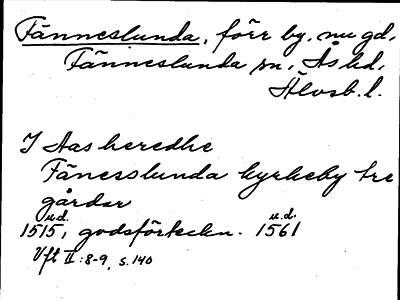 Fänneslunda, förr by, nu gd,
Fänneslunda sn, Ås hd,
Älvsb. l.
I Aas heredhe
Fänesslunda kyrkeby tre
gårdar
u.d. u.d.
1515, godsförteckn. 1561
Vft II: 8-9, s. 140